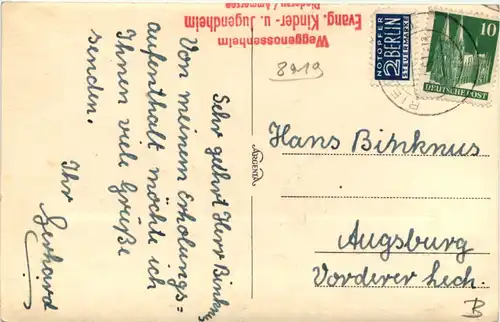 Weggenossenheim
Evang. Kinder- u. Jugendheim
Riederau / Ammersee
8219
NOTOPFER
2 BERLIN
STEUERMARKE
10
DEUTSCHE POST
Sehr geehrt Herr Binknus
Von meinem Erholungs=
aufenthalt möchte ich
Ihnen viele Grüße
senden.
Ihr
Gerhard
ARGENDA
Hans Binknus
Augsburg
Vorderer Lech.
B